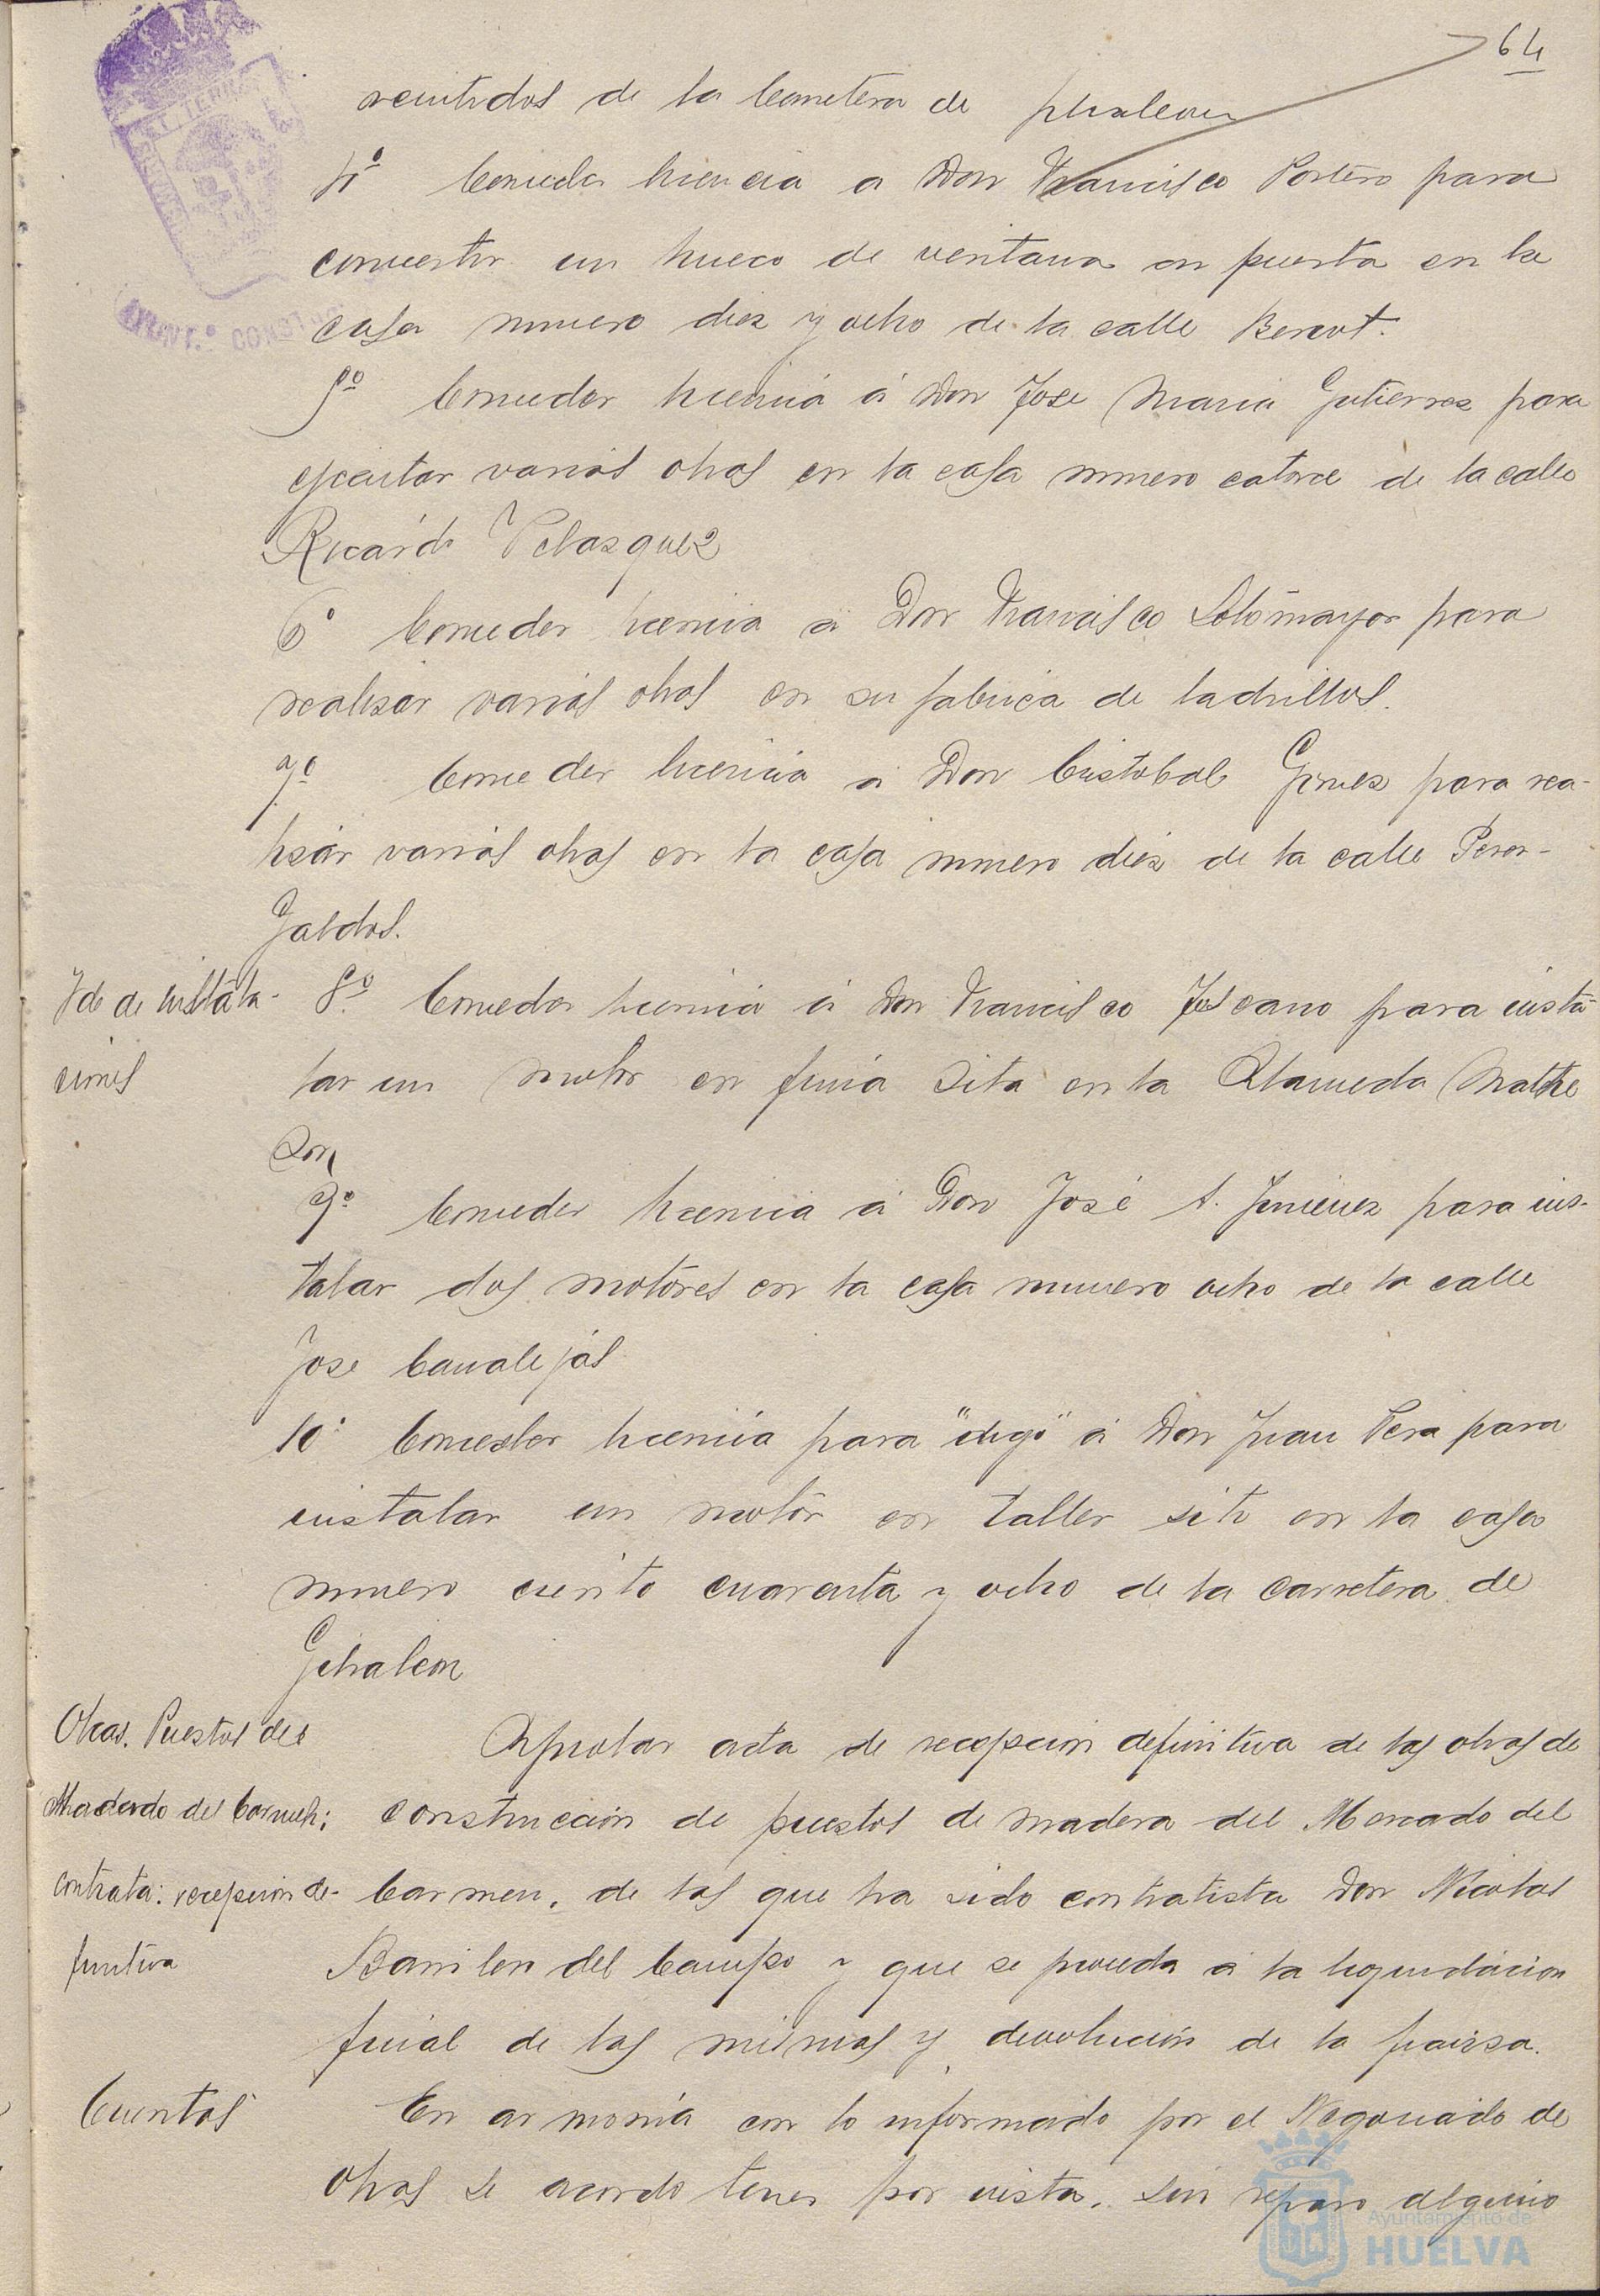 64
de la Carretera de
4º Conceder licencia a Don Francisco Portero para
convertir un hueco de ventana en puerta en la
casa numero diez y ocho de la calle Berdot.
5º Conceder licencia á Don Jose Maria Gutierrez para
ejecutar varias obras en la casa numero catorce de la calle
Ricardo Velasquez
6º Conceder licencia á Don Francisco Sotomayor para
realizar varias obras en su fabrica de ladrillos.
7º Conceder licencia á Don Cristobal Gomez para rea-
lizar varias obras en la casa numero diez de la calle Perez-
Galdos.
Id de instala-
ciones
8º Conceder licencia á Don Francisco Toscano para insta-
lar un motor en finca sita en la Alameda Mathe
son
9º Conceder licencia á Don José A. Jimenez para ins-
talar dos motores en la casa numero ocho de la calle
Jose Canalejas
10º Conceder licencia para "digo" á Don Juan Vera para
instalar un motor en taller sito en la casa
numero ciento cuarenta y ocho de la carretera de
Gibraleon
Obras. Puestos del
Mercado del Carmen;
contrata: recepcion de-
finitiva
Aprobar acta de recepcion definitiva de las obras de
construcción de puestos de madera del Mercado del
Carmen, de las que ha sido contratista Don Nicolas
del Campo y que se proceda a la liquidacion
final de las mismas y devolución de la fianza.
Cuentas
En armonia con lo informado por el Negociado de
Obras se acordo tener por vista, sin reparo alguno
AYUNT.º CONST
Ayuntamiento de
HUELVA